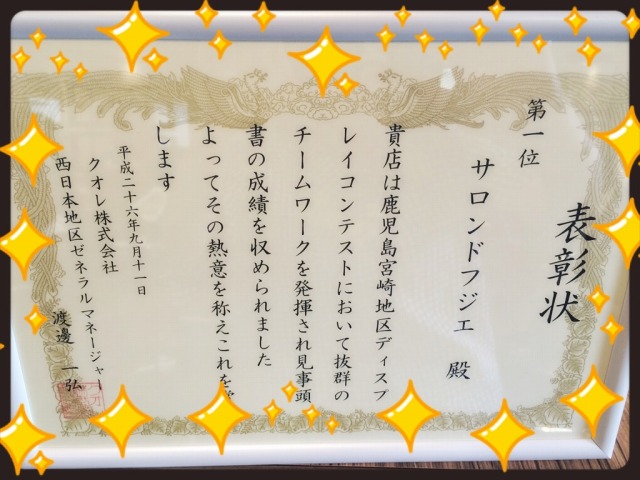 表彰状
第一位
サロンドフジエ 殿
貴店は鹿児島宮崎地区ディスプ
レイコンテストにおいて抜群の
チームワークを発揮され見事頭
書の成績を収められました
よってその熱意を称えこれを
します
平成二十六年九月十一日
クオレ株式会社
西日本地区ゼネラルマネージャー
渡邊 一弘